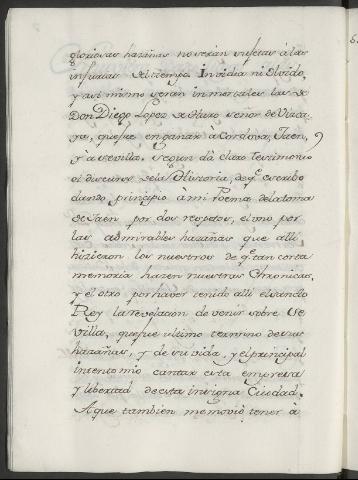 gloriosas hazañas no serán sujetas a las
injurias del tiempo Invidia ni Olvido,
y asi mismo seran inmortales las de
Don Diego Lopez de Haro señor de Vizca-
ya, que fue en ganar à Cordova, Jaen,
y à Sevilla, segun dà claro testimonio
el discurso de la Historia, de q.e escribo
dando principio à mi Poema de la toma
de Jaen por dos respetos, el uno por
las admirables hazañas que alli
hizieron los nuestros de q.e tan corta
memoria hazen nuestras Chronicas,
y el otro por haver tenido alli el santo
Rey la revelacion de venir sobre Se
villa, que fue ultimo termino de sus
hazañas, y de su vida, y el principal
intento mio cantar esta empresa
y libertad de esta insigne Ciudad.
A que tambien me movió tener à